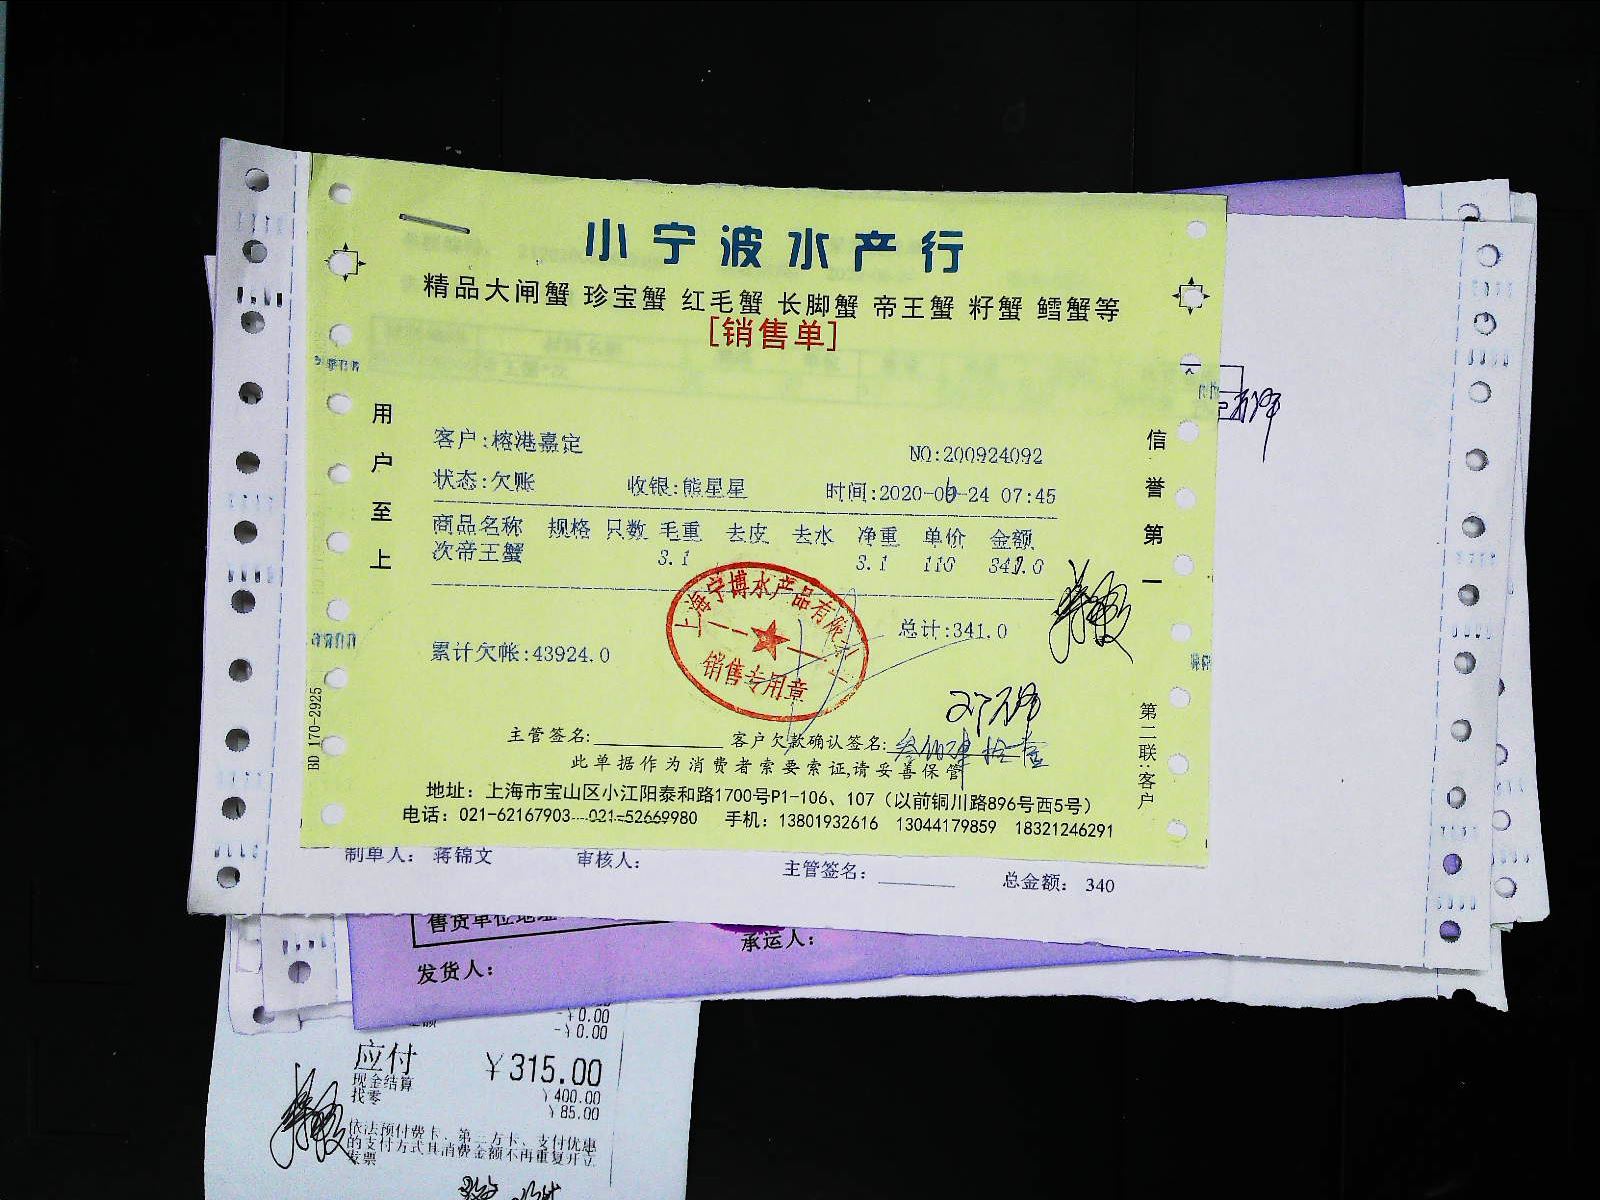 小宁波水产行
精品大闸蟹 珍宝蟹 红毛蟹 长脚蟹 帝王蟹 籽蟹 鳕蟹等
[销售单]
用户至上
信誉第一
客户:榕港嘉定
NO:200924092
状态:欠账 收银:熊星星 时间:2020-09-24 07:45
商品名称 规格 只数 毛重 去皮 去水 净重 单价 金额
次帝王蟹 3.1 3.1 110 341.0
上海宁博水产品有限
销售专用章
总计:341.0
累计欠帐:43924.0
BD 170-2925
主管签名: 客户欠款确认签名: 叁佰肆拾壹
此单据作为消费者索要索证,请妥善保管
第二联:客户
地址：上海市宝山区小江阳泰和路1700号P1-106、107（以前铜川路896号西5号）
电话：021-62167903 021-52669980 手机：13801932616 13044179859 18321246291
制单人： 蒋锦文 审核人： 主管签名： 总金额： 340
售货单位地址
承运人：
发货人：
-¥0.00
-¥0.00
应付 ¥315.00
现金结算 ¥400.00
找零 ¥85.00
依法预付费卡、第三方卡、支付优惠
的支付方式其消费金额不再重复开立
发票